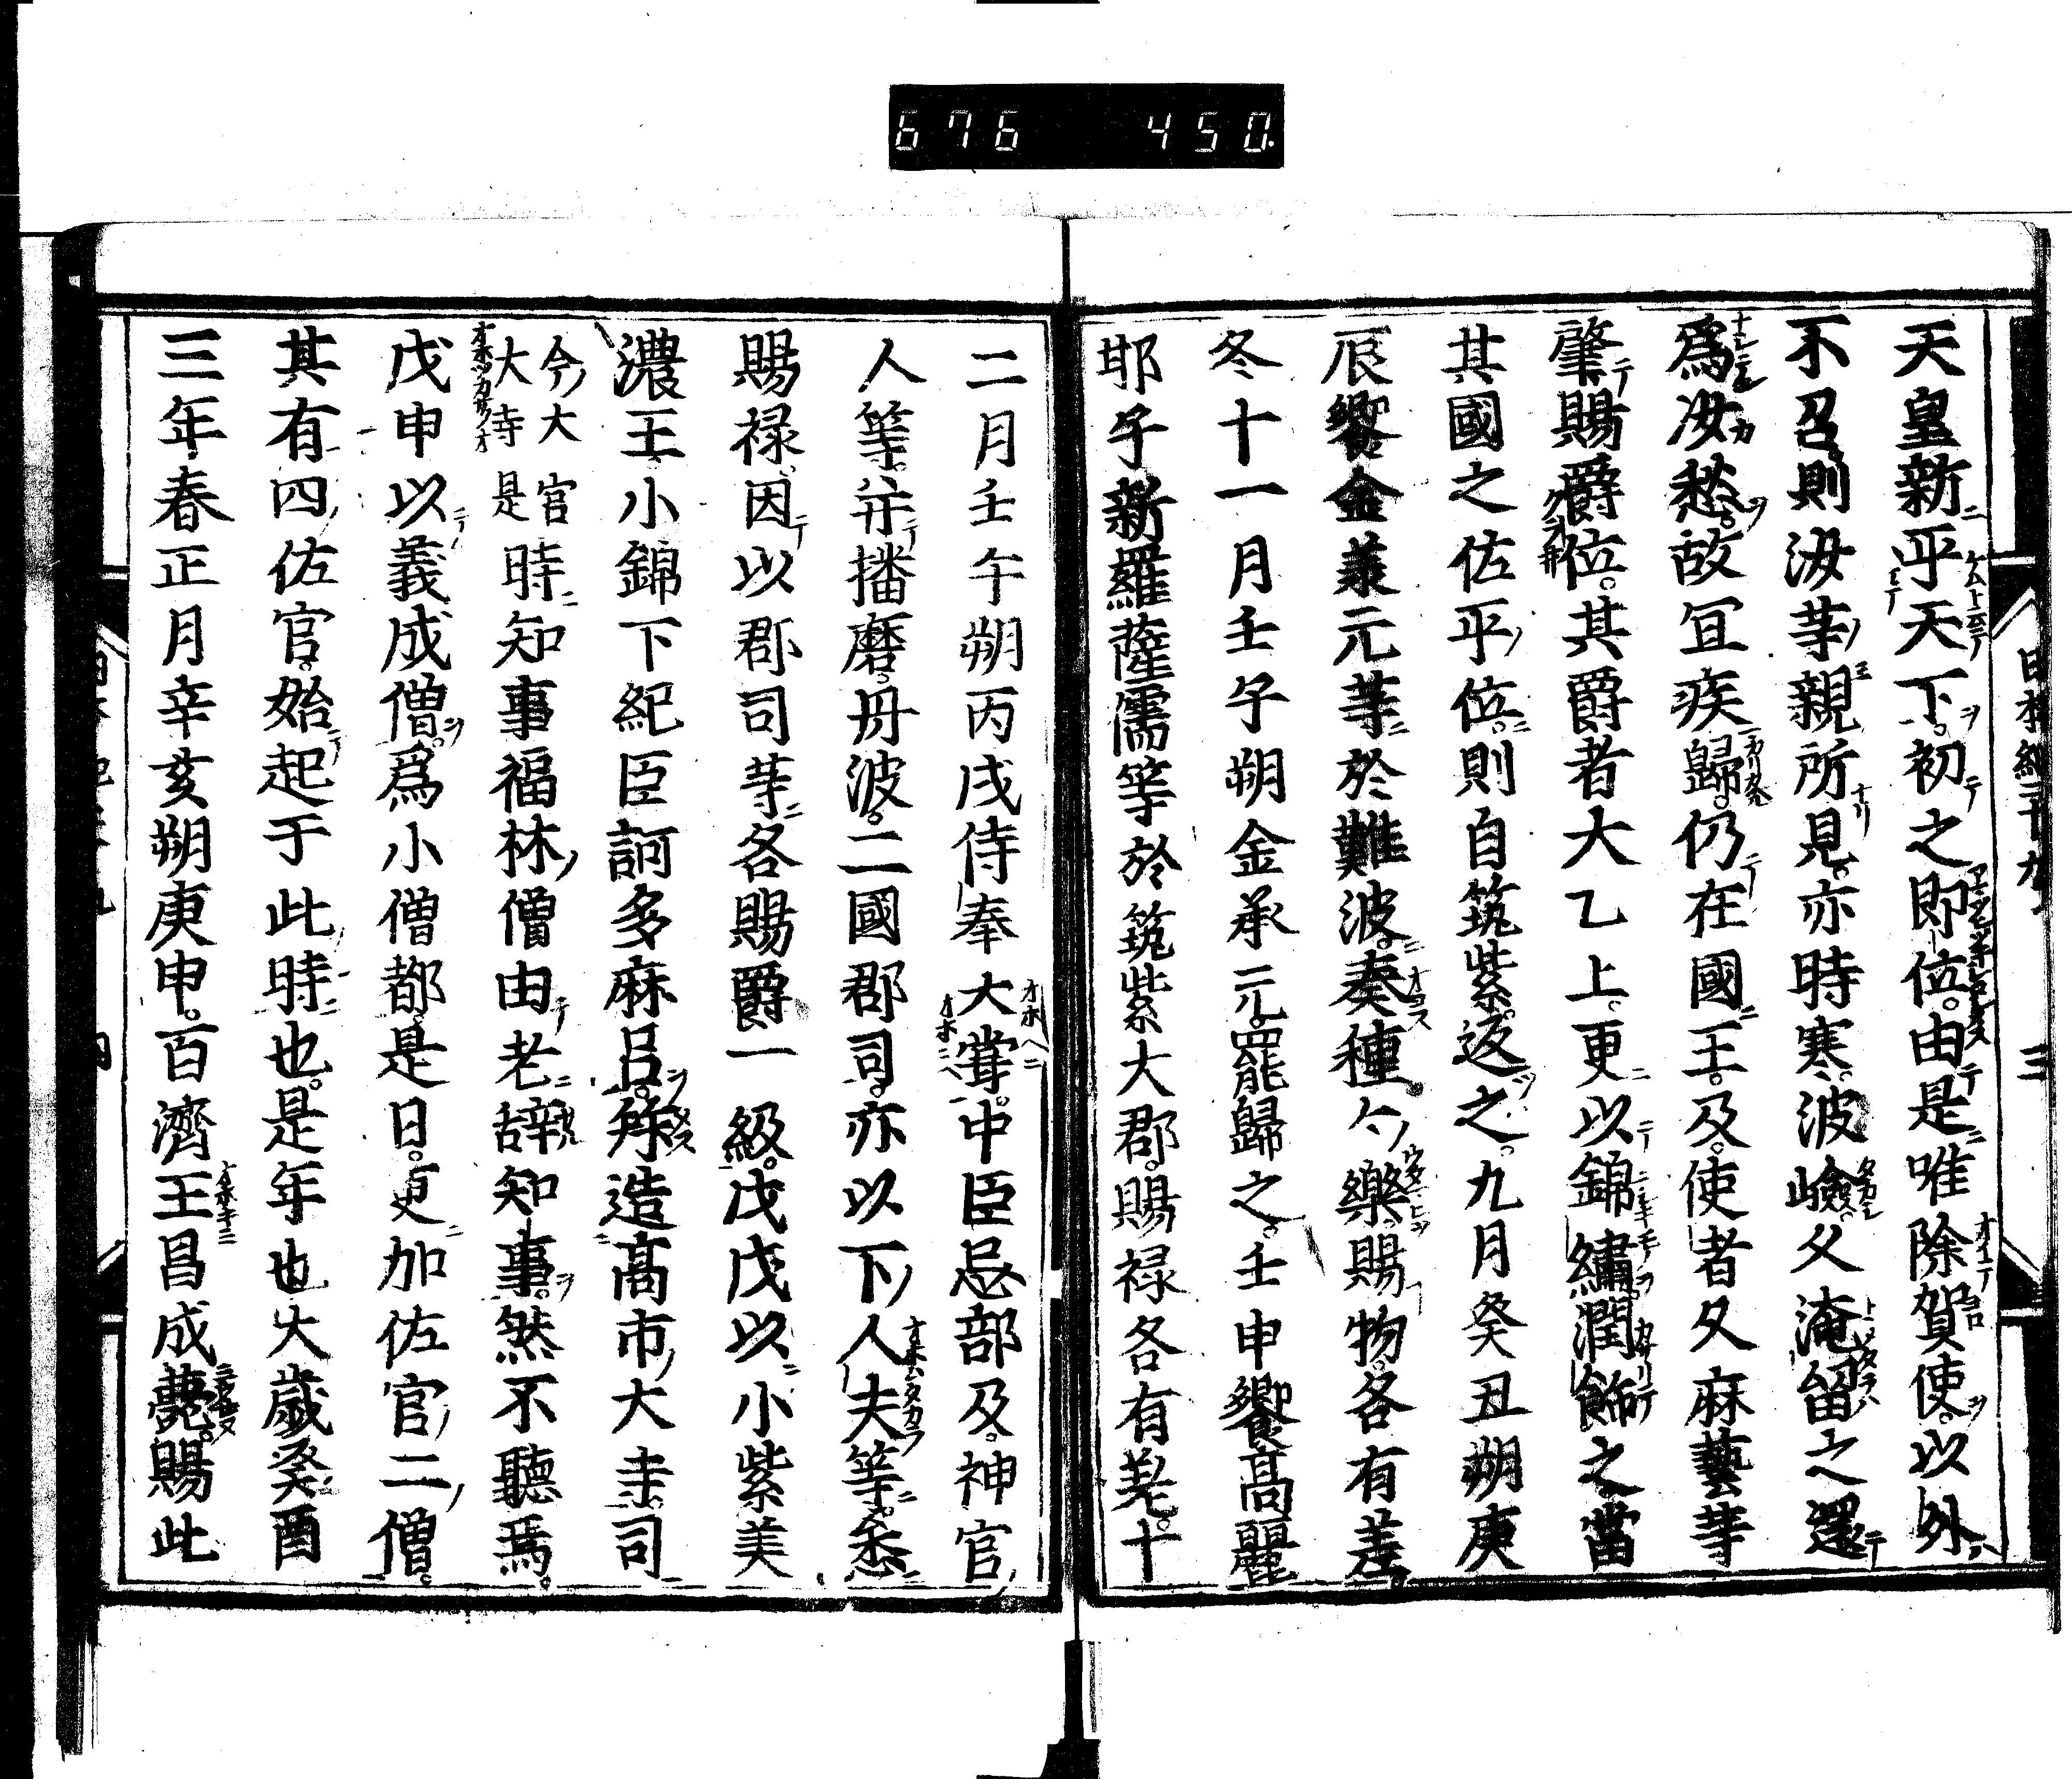 676 450
日本紀二十九 三
天皇新平天下。初之即位。由是唯除賀使。以外
不召。則汝等親所見。亦時寒。波嶮。久淹留之還
爲汝愁。故冝疾歸。仍在國王。及。使者久麻藝等
肇賜爵位。其爵者大乙上。更以錦繍潤飾之當
其國之佐平位。則自筑紫。返之。九月癸丑朔庚
辰饗金承元等於難波。奏種々樂。賜物。各有差。
冬十一月壬子朔金承元。罷歸之。壬申饗髙麗
耶子新羅薩儒等於筑紫大郡。賜禄各有差。十
二月壬午朔丙戌侍奉大甞。中臣忌部及。神官
人等。并播磨。丹波。二國郡司。亦以下人夫等。悉
賜禄。因以郡司等各賜爵一級。戊戌以小紫美
濃王。小錦下紀臣訶多麻呂。拜造髙市大寺。司
今大官大寺是時知事福林僧由老辞知事。然不聽焉。
戊申以義成僧。爲小僧都。是日。更加佐官二僧。
其有四佐官。始起于此時也。是年也大歳癸酉
三年春正月辛亥朔庚申。百濟王昌成薨。賜此